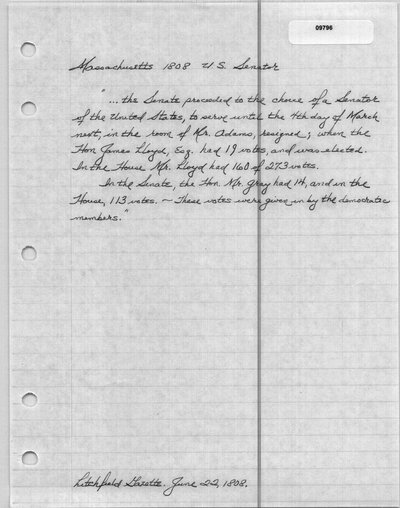 09796
Massachusetts 1808 U.S. Senator
"... the Senate proceeded to the choice of a Senator
of the United States, to serve until the 4th day of March
next, in the room of Mr. Adams, resigned; when the
Hon James Lloyd, Esq. had 19 votes, and was elected.
In the House Mr. Lloyd had 160 of 273 votes.
In the Senate, the Hon. Mr. Gray had 14, and in the
House, 113 votes. — These votes were given in by the democratic
members."
Litchfield Gazette. June 22, 1808.